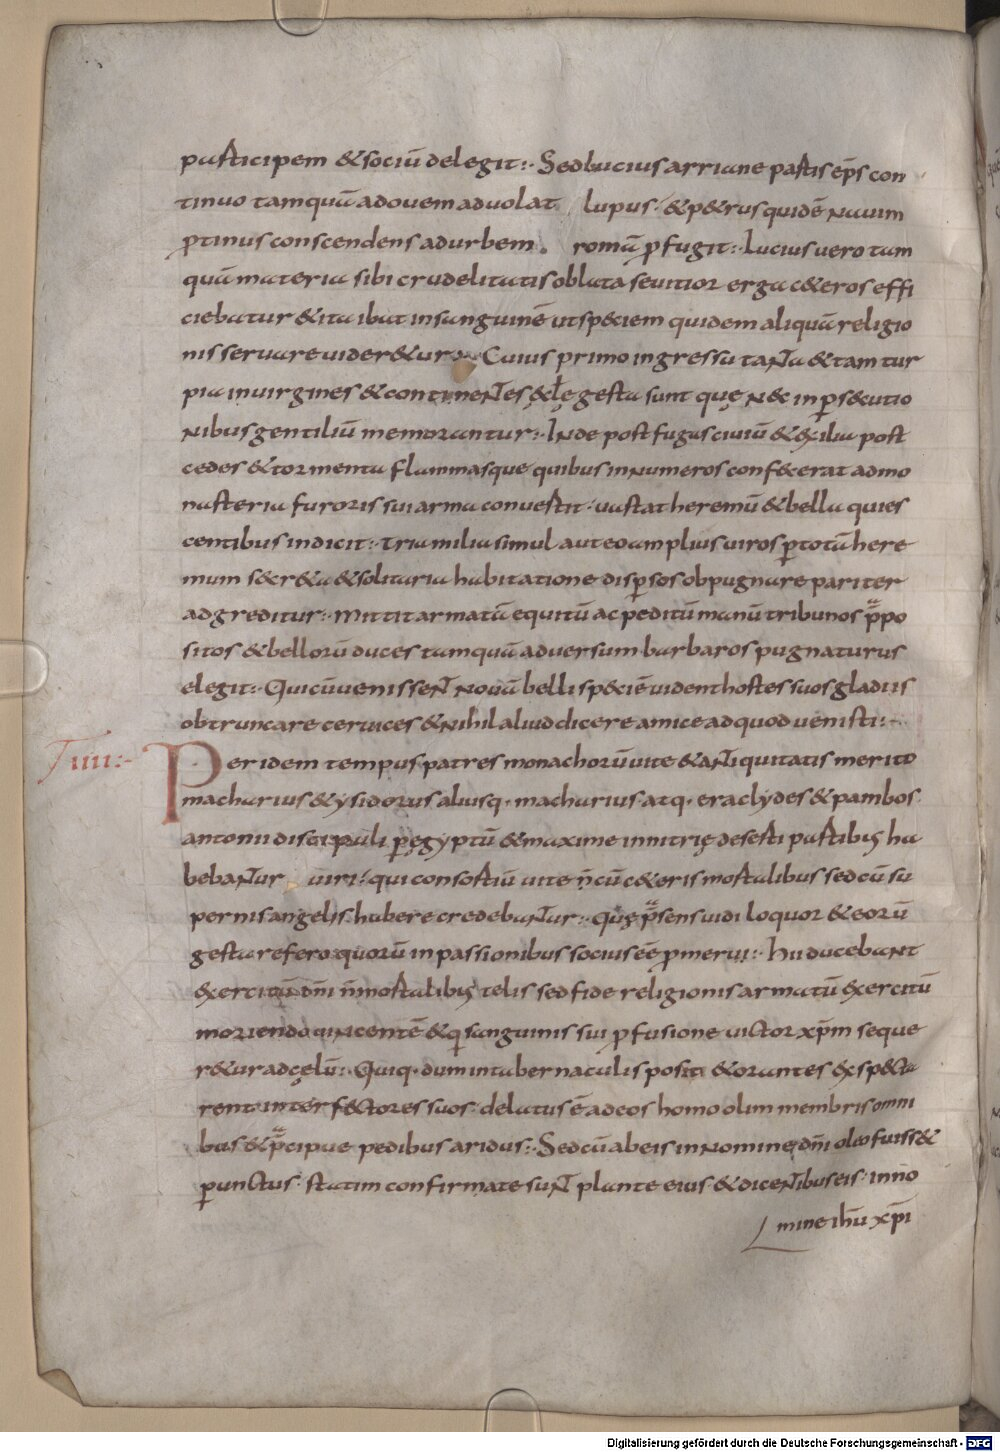 participem & sociū delegit:· Sed lucius arriane partis ep̄s con
tinuo tamquā ad ovem advolat lupus· & p&rus quidē navim
p̱tinus conscendens ad urbem romā p̱fugit:· Lucius vero tam
quā materia sibi crudelitatis oblata sevitior erga c&eros effi
ciebatur & ita ibat in sanguinē ut sp&iem quidem aliquā religio
nis servare vider&ur· Cuius primo ingressu tanta & tam tur
pia in virgines & continentes ęcl̄ę gesta sunt quę n&c in ꝑs&cutio
nibus gentiliū memorantur:· Inde post fugas civiū & &xilia post
cedes & tormenta flammasque quibus innumeros conf&cerat ad mo
nasteria furoris sui arma convertit· vastat heremū & bella quies
centibus indicit:· Tria milia simul aut eo amplius viros ꝑ totā here
mum s&cr&a & solitaria habitatione disꝑsos obpugnare pariter
adgreditur:· Mittit armatā equitū ac peditū manū tribunos p̄po
sitos & bellorū duces tamquā adversum barbaros pugnaturus
elegit:· Qui cū venissent novā belli sp&ciē vident hostes suos gladiis
obtruncare cervices & nihil aliud dicere amice ad quod venisti:·
IIII:- Per idem tempus patres monachorū vite & antiquitatis merito
macharius & ysidorus aliusq· macharius· atq· eraclydes & pambos
antonii discipuli ꝑ ęgyptū & maxime in nitrię deserti partibus ha
bebantur viri· qui consortiū vite n̄ cū c&eris mortalibus sed cū su
pernis angelis habere credebantur:· Quę p̄sens vidi loquor & eorū
gesta refero quorū in passionibus socius eē p̱merui:· Hii ducebant
&xercitū dn̄i n̄ mortalibus telis sed fide religionis armatū &xercitū
moriendo vincentē & q̄ sanguinis sui p̱fusione victor xp̄m seque
r&ur ad cęlū:· Quiq· dum in tabernaculis positi & orantes &xsp&cta
rent interf&ctores suos· delatus ē ad eos homo olim membris omni
bus & p̄cipue pedibus aridus:· Sed cū ab eis in nomine dn̄i oleo fuiss&
ꝑunctus· statim confirmate sunt plante eius· & dicentibus eis· in no
mine ihū xp̄i
Digitalisierung gefördert durch die Deutsche Forschungsgemeinschaft - DFG